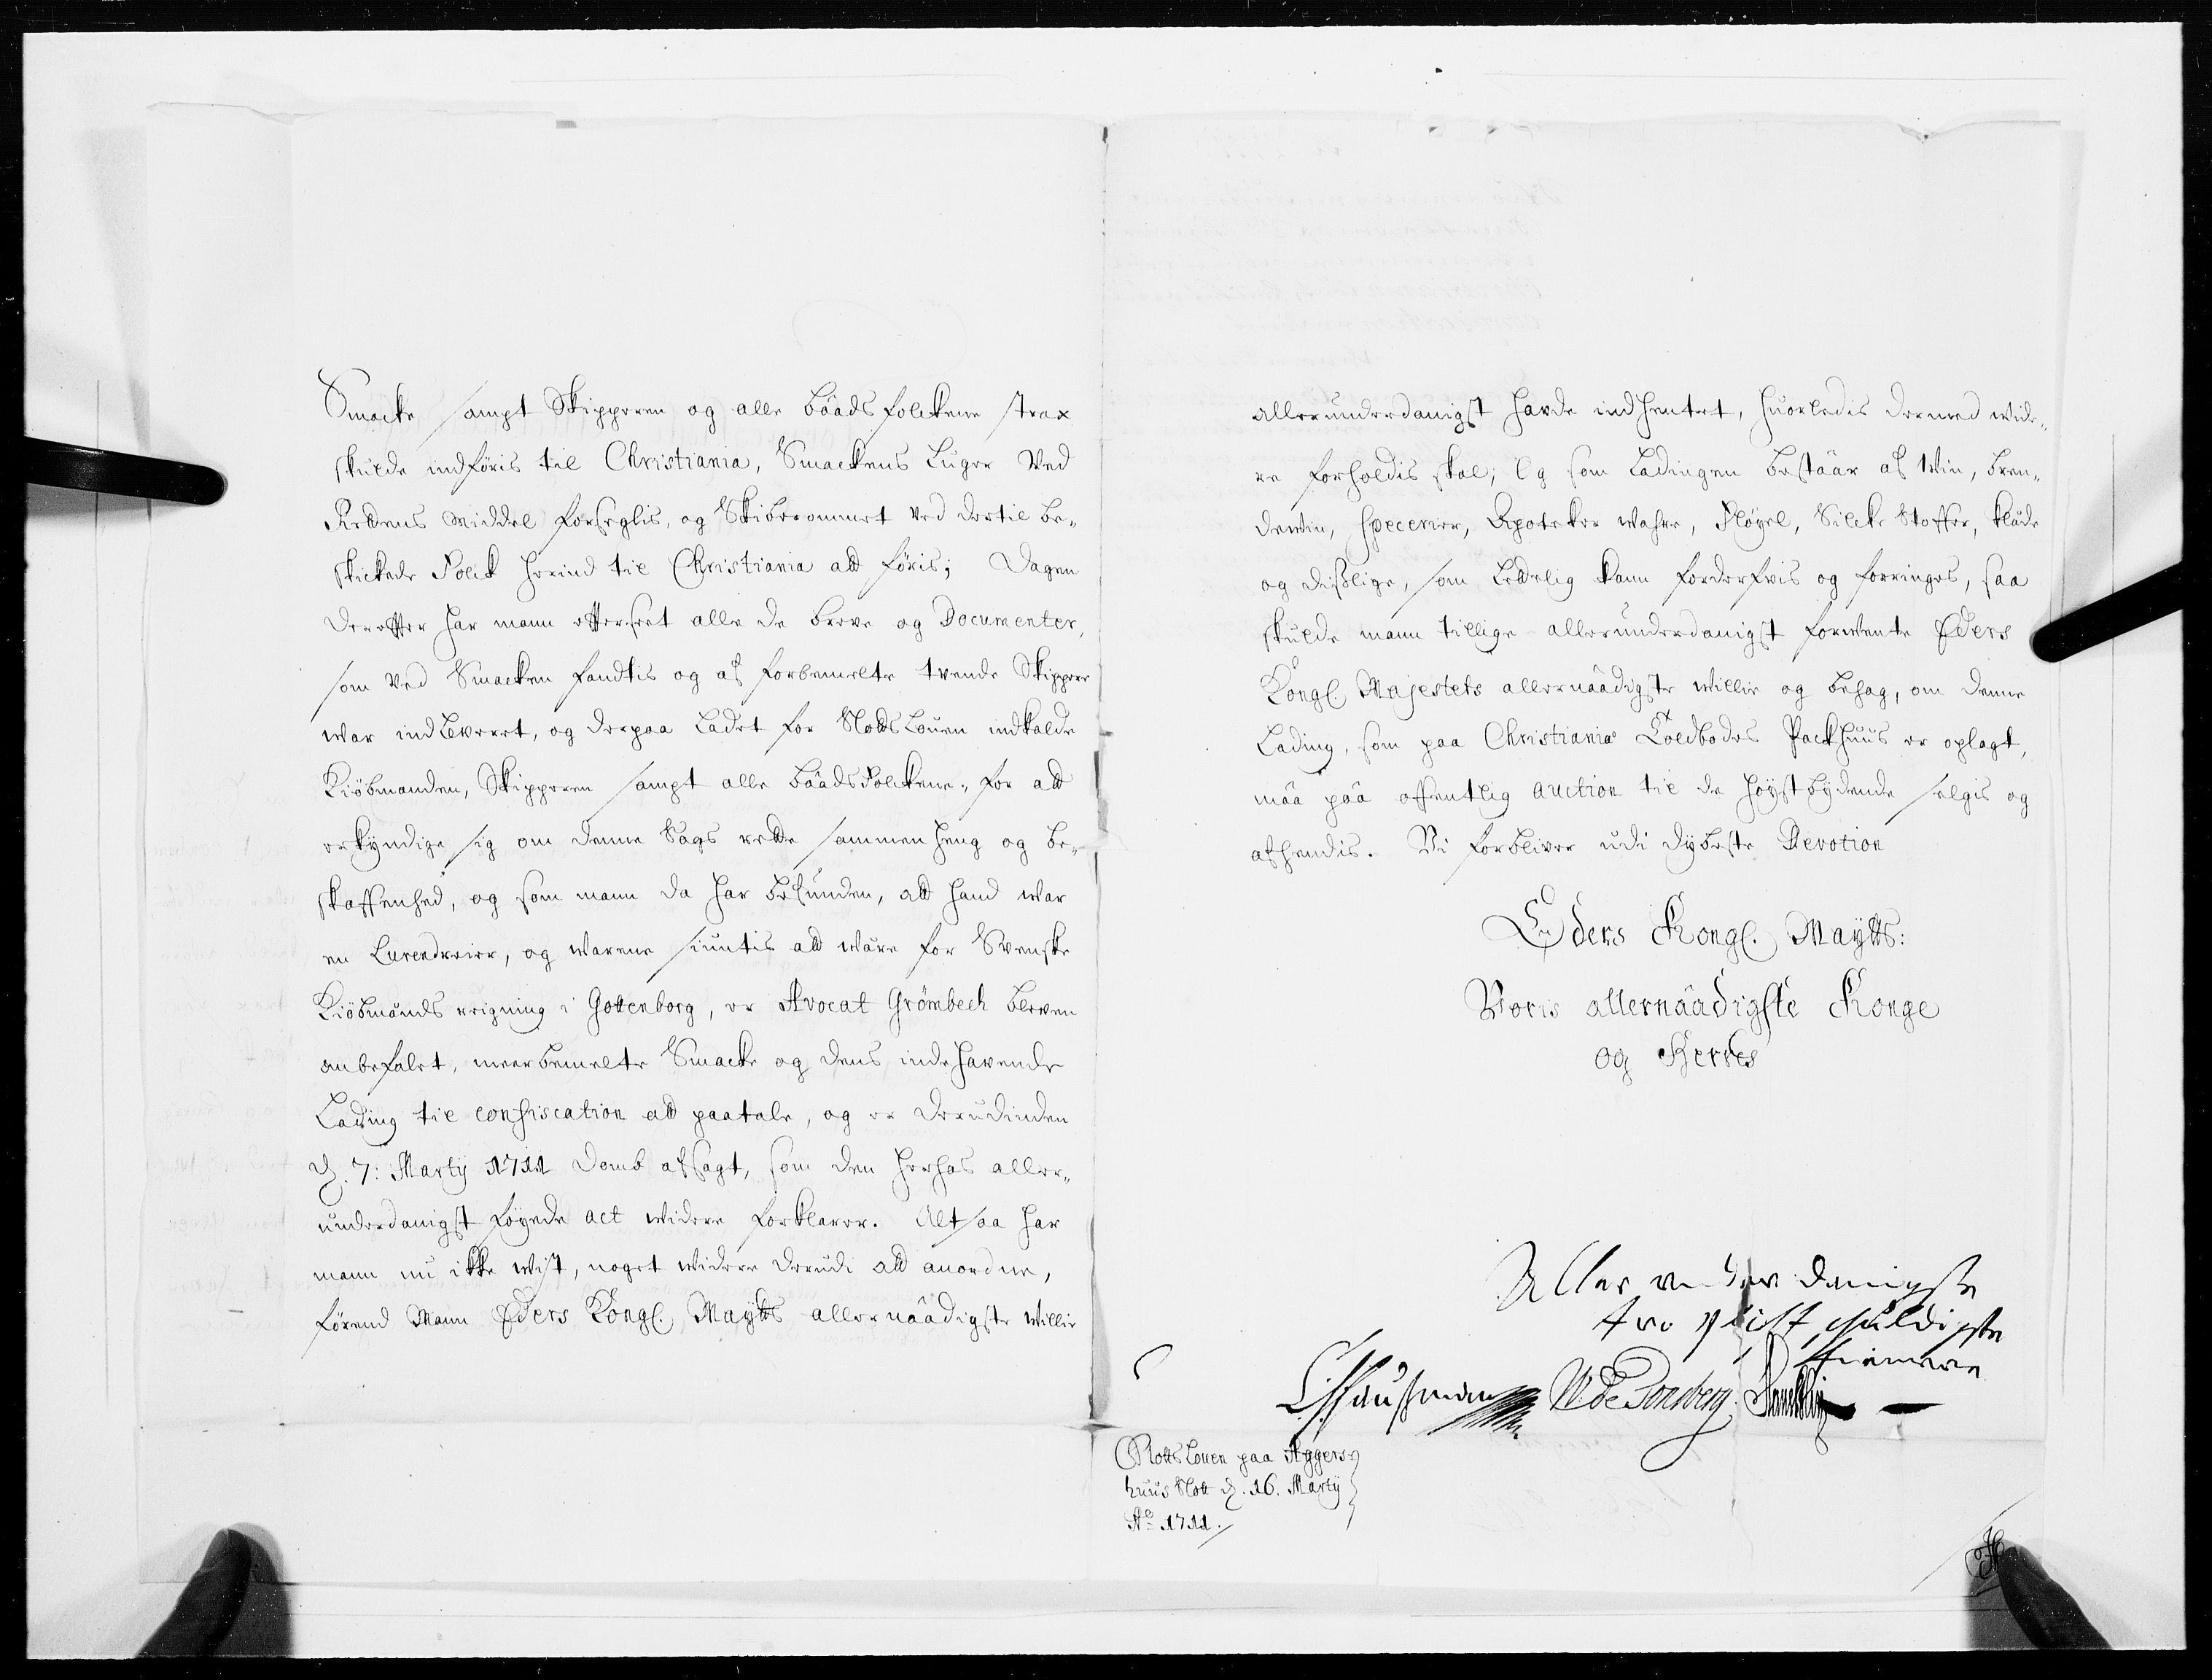 Smacke sampt Skipperen og alle baadsfolckene strax
skulde indføris til Christiania, Smackens Luger Ved
Rettens Middel forseglis, og Skiberommet ved dertil be-
skickede Folck herind til Christiania att føris; Dagen
derefter har mann efterseet alle de breve og Documenter,
som Ved Smacken fandtis og af forbemelte tvende Skippere
war indleveret, og derpaa Ladet for Slotts Louen indkalde
Kiøbmanden, Skipperen sampt alle baadsFolckene, for att
erkyndige sig om denne Sags rette sammenheng og be-
skaffenhed, og som mann da har befunden, att hand war
en Lurendreier, og warene siuntis att være for Svenske
Kiøbmænds reigning i Gottenborg, er Avocat Grømbech bleven
anbefalet, meerbemelte Smacke og dens indehavende
Lading til confiscation att paatale, og er derudinden
d. 7: Marty 1711 domb afsagt, som den herhos aller-
underdanigst føyede act widere forklarer. Altsaa har
mann nu ikke wist, noget widere derudi att anordne,
førend Mann Eders Kongl. Maytts allernaadigste Willie
allerunderdanigst hafde indhentet, huorledis dermed wide-
re forholdis skal; Og som Ladingen bestaar af Win, bren-
dewin, specerier, Apoteker wahre, Fløyel, Silcke Stoffer, klæde
og dislige, som Lettelig kann forderfvis og forringes, saa
skulde mann tillige allerunderdanigst forwente Eders
Kongl. Majestets allernaadigste willie og behag, om denne
Lading, som paa Christiania Toldbodes Packhuus er oplagt,
maa paa offentlig auction til de høystbydende selgis og
afhendis. Vi forbliver udi dybeste Devotion
Eders Kongl. Maytts:
Voris allernaadigste Konge
og Herres
Aller under danigste
tro plict skuldigste
tienere
C Hausman W. de Tonsberg
SlottsLouen paa Aggers-
huus Slott d. 16. Marty
Ao 1711.